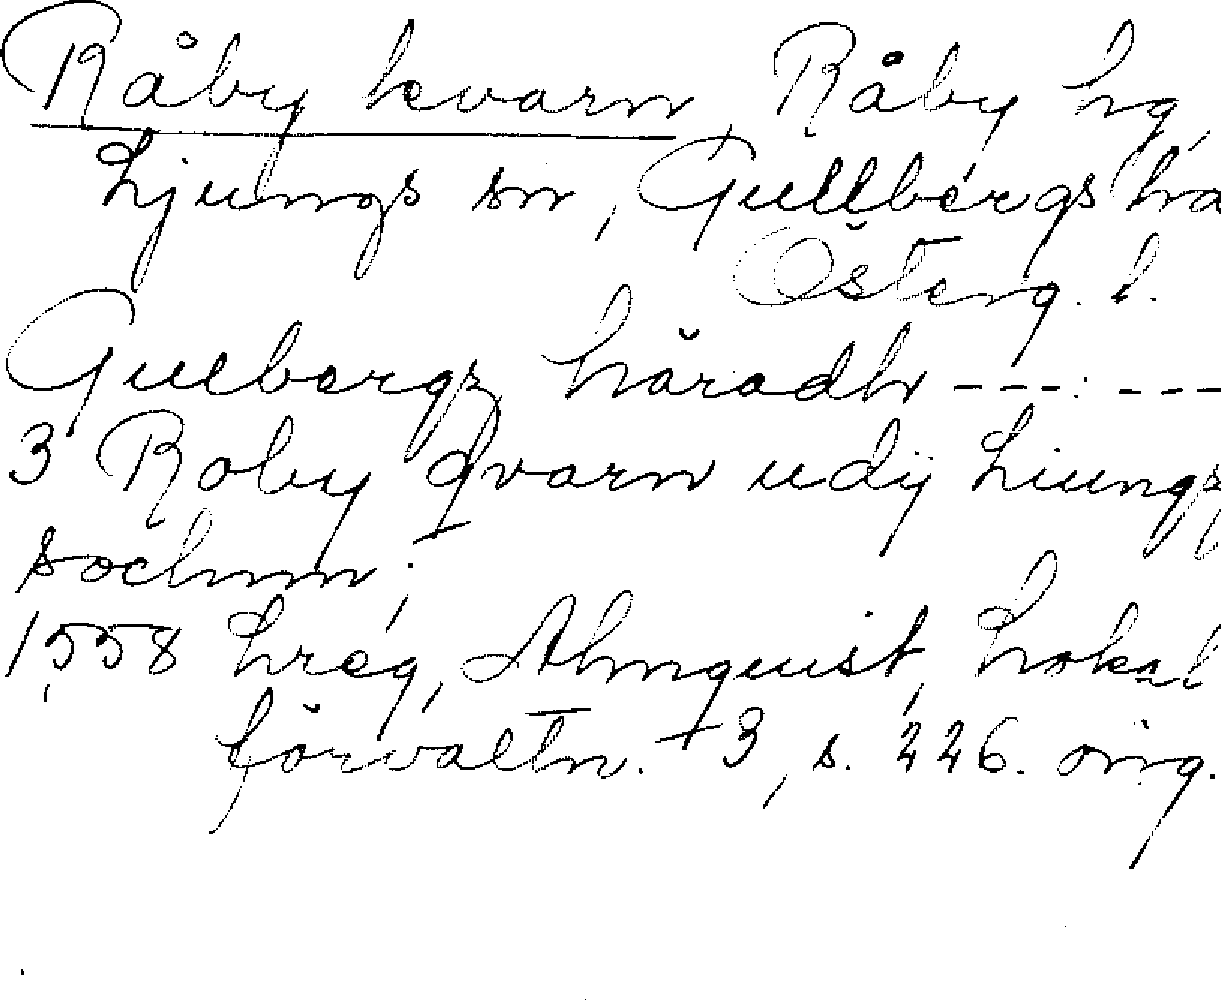 Råby kvarn, Råby hg,
Ljungs sn, Gullbergs hd
Österg. l.
Gulbergz häradh --- ---
3 Roby qvarn udÿ Liungz
sochnn;
1558 Lreg, Almquist, Lokal
förvaltn. +3, s. 226. orig.